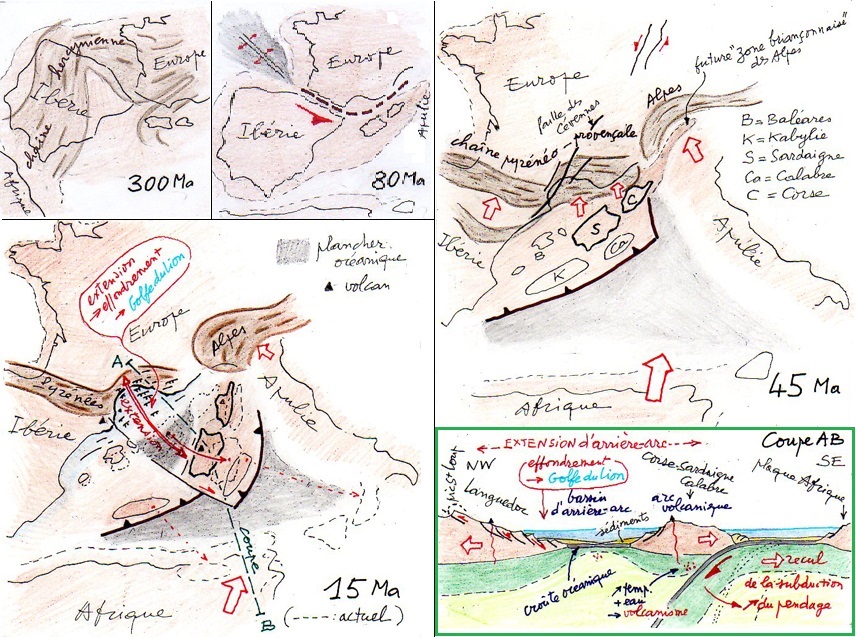 chaîne
hercynienne
Ibérie
Europe
Afrique
300 Ma
Europe
Ibérie
Apulie
80 Ma
future "zone briançonnaise"
des Alpes
Europe
Alpes
faille des
Cévennes
chaîne pyrénéo-provençale
B = Baléares
K = Kabylie
S = Sardaigne
Ca = Calabre
C = Corse
Ibérie
B
S
C
Ca
K
Apulie
45 Ma
Afrique
extension
→ effondrement
→ Golfe du lion
plancher
océanique
▲ volcan
Europe
Alpes
A
Pyrénées
Ibérie
extension
Apulie
coupe
15 Ma
(----: actuel)
Afrique
B
EXTENSION d'arrière-arc
Coupe AB
NW
SE
Pic St Loup
Languedoc
effondrement
→ Golfe du lion
bassin
d'arrière-arc
Corse-Sardaigne
Calabre
arc
volcanique
Plaque Afrique
sédiments
croûte océanique
↗ temp.
+ eau
→ volcanisme
⇨ recul
de la subduction
↗ du pendage